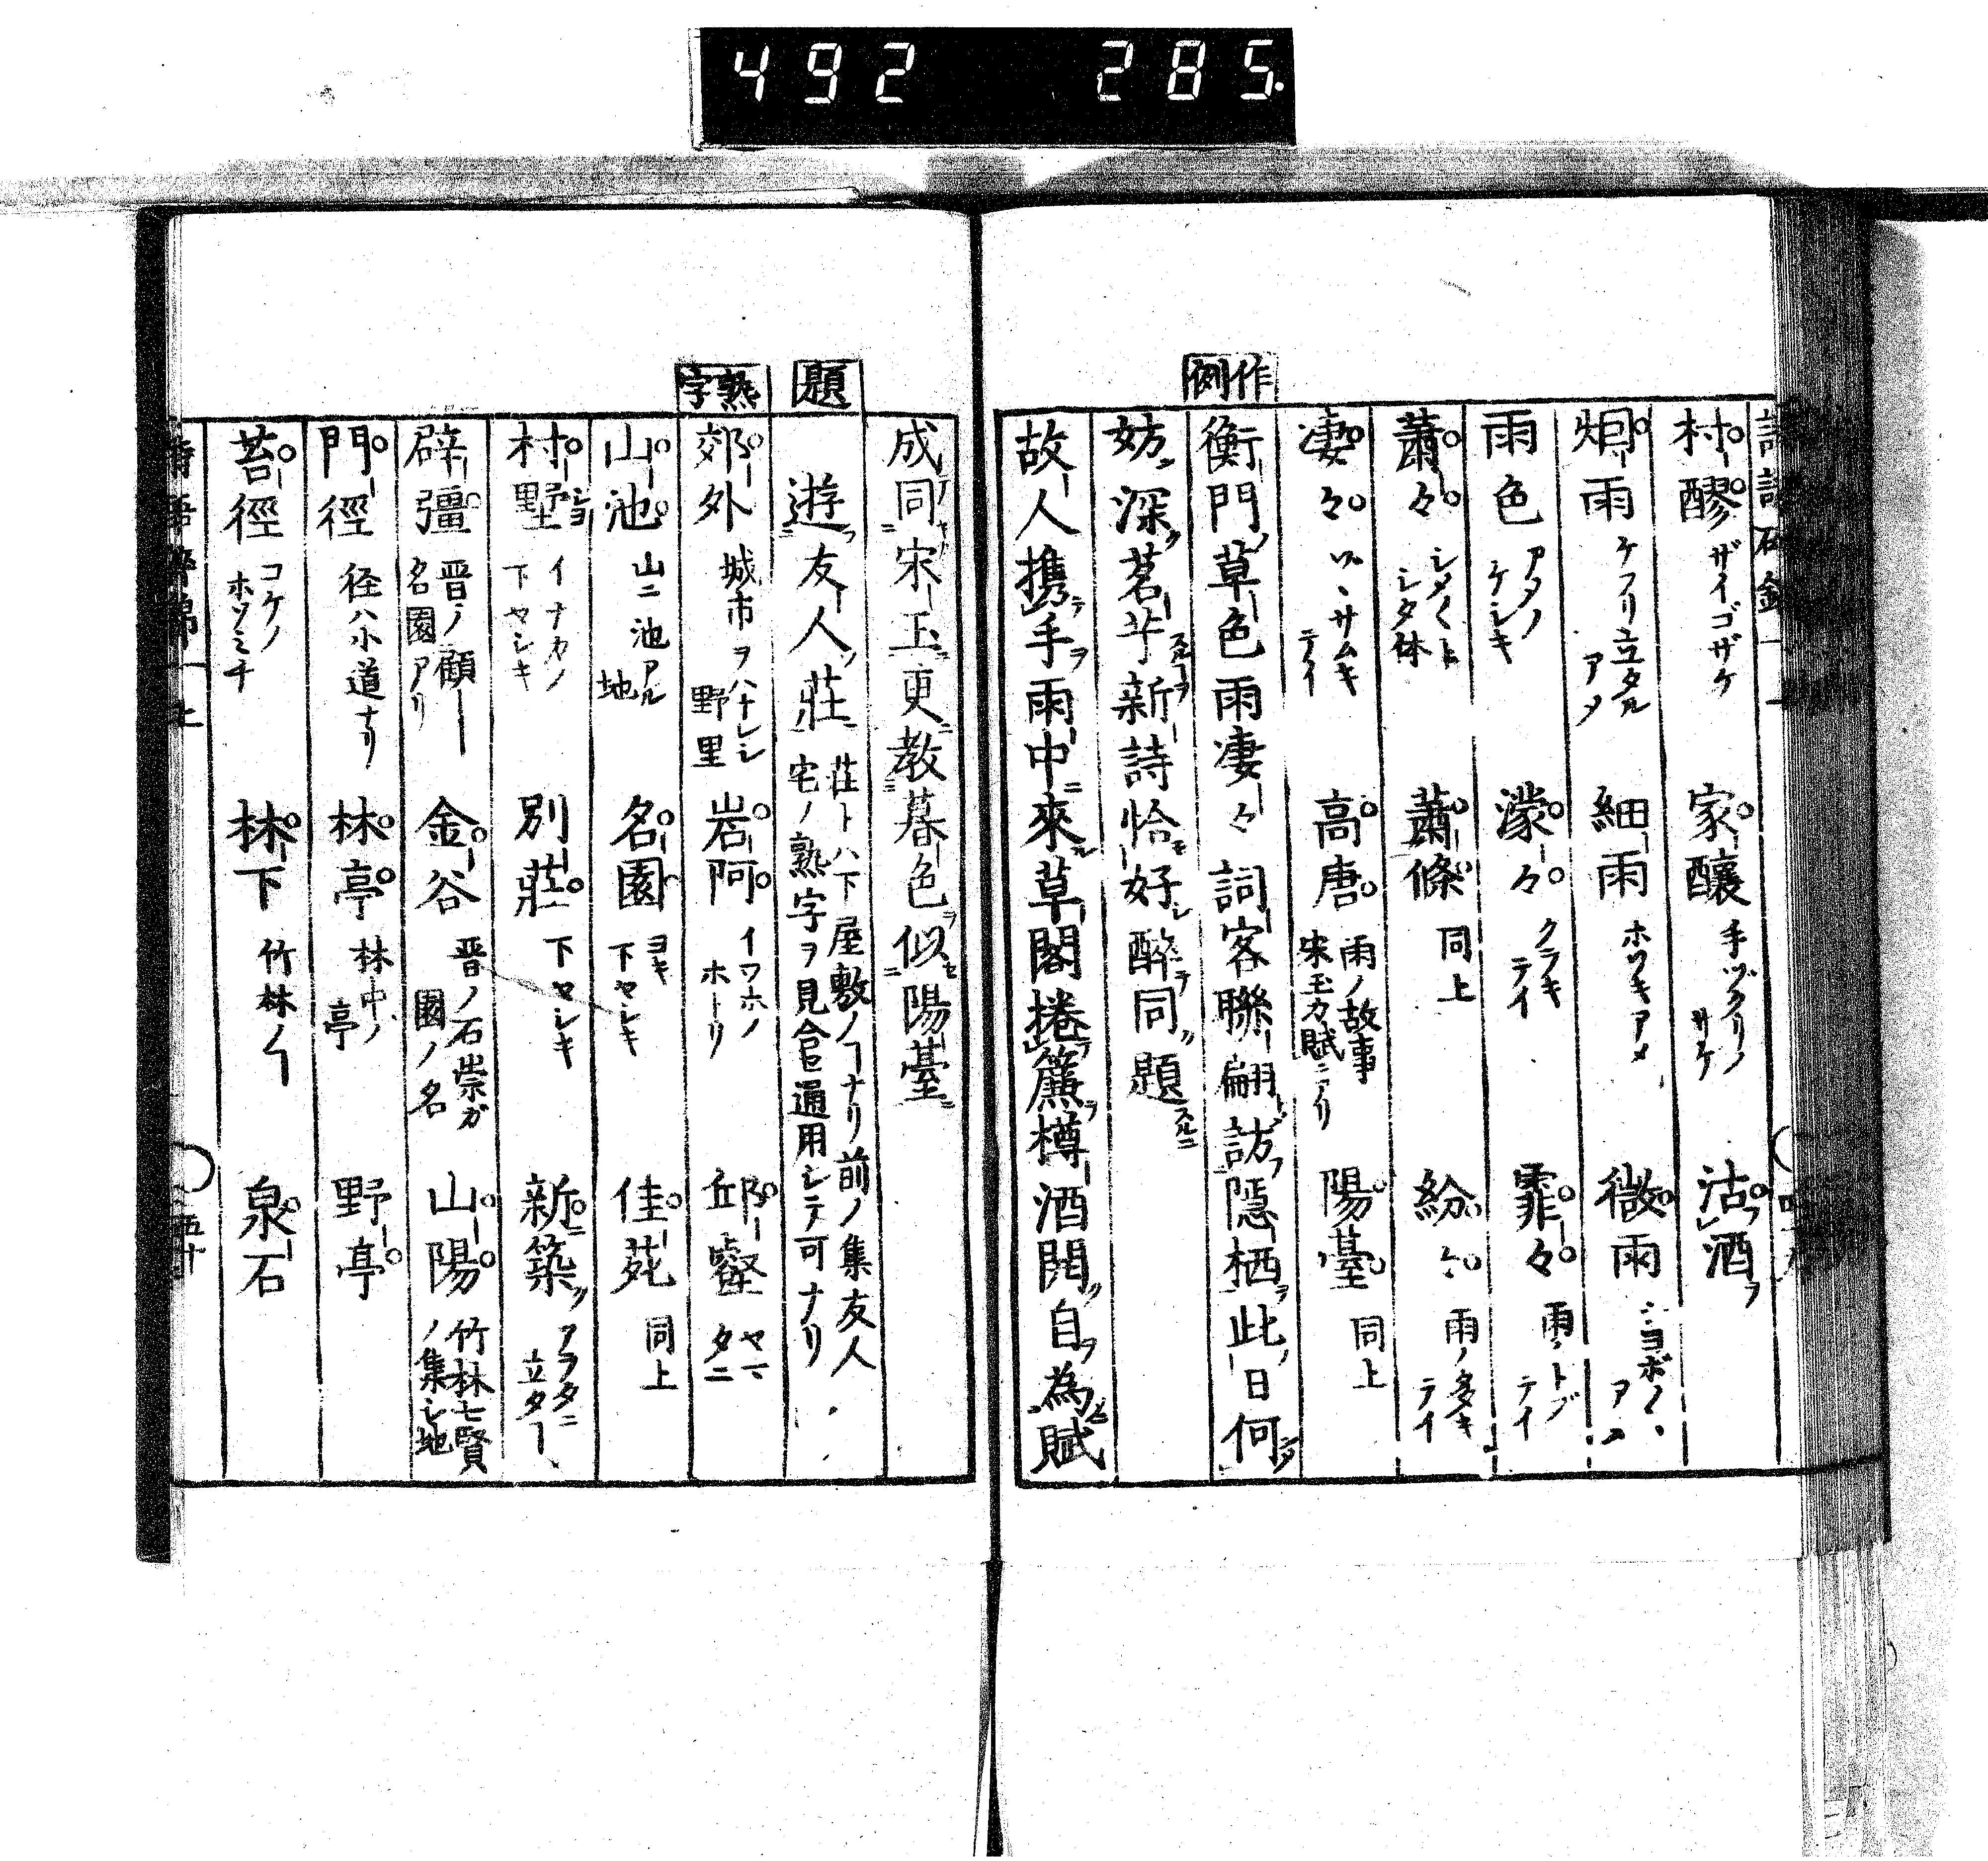 492 285.
村醪 ザイゴザケ 家釀 手ヅクリノサケ 沽酒
烟雨 ケフリ立タルアメ 細雨 ホソキアメ 微雨
雨色 アメノケシキ 濛々 クラキテイ 霏々 雨ノトブテイ
蕭々 シタ体 蕭條 同上 紛々 雨ノ多キテイ
凄々 サムキテイ 高唐 雨ノ故事宋玉カ賦ニアリ 陽臺 同上
作例
衡門草色雨凄々詞客聯翩訪隠栖此日何
妨深茗芋新詩恰好酔同題
故人携手雨中來草閣捲簾樽酒開自為賦
成同宋玉更教暮色似陽臺
題
遊友人莊 莊トハ下屋敷ノヿナリ前ノ集友人宅ノ熟字ヲ見合セ通用シテ可ナリ
熟字
郊外 城市ヲハナレシ野里 岩阿 イワホノホトリ 邱壑 ヤマタニ
山池 山ニ池アル地 名園 ヨキ下ヤシキ 佳苑 同上
村野 イナカノ下ヤシキ 別莊 下ヤシキ 新築 アラタニ立タヿ
辟彊 晋ノ顧ー名園アリ 金谷 晋ノ石崇ガ園ノ名 山陽 竹林七賢ノ集シ地
門徑 径ハ小道ナリ 林亭 林中ノ亭 野亭
苔徑 コケノホソミチ 林下 竹林ノヿ 泉石